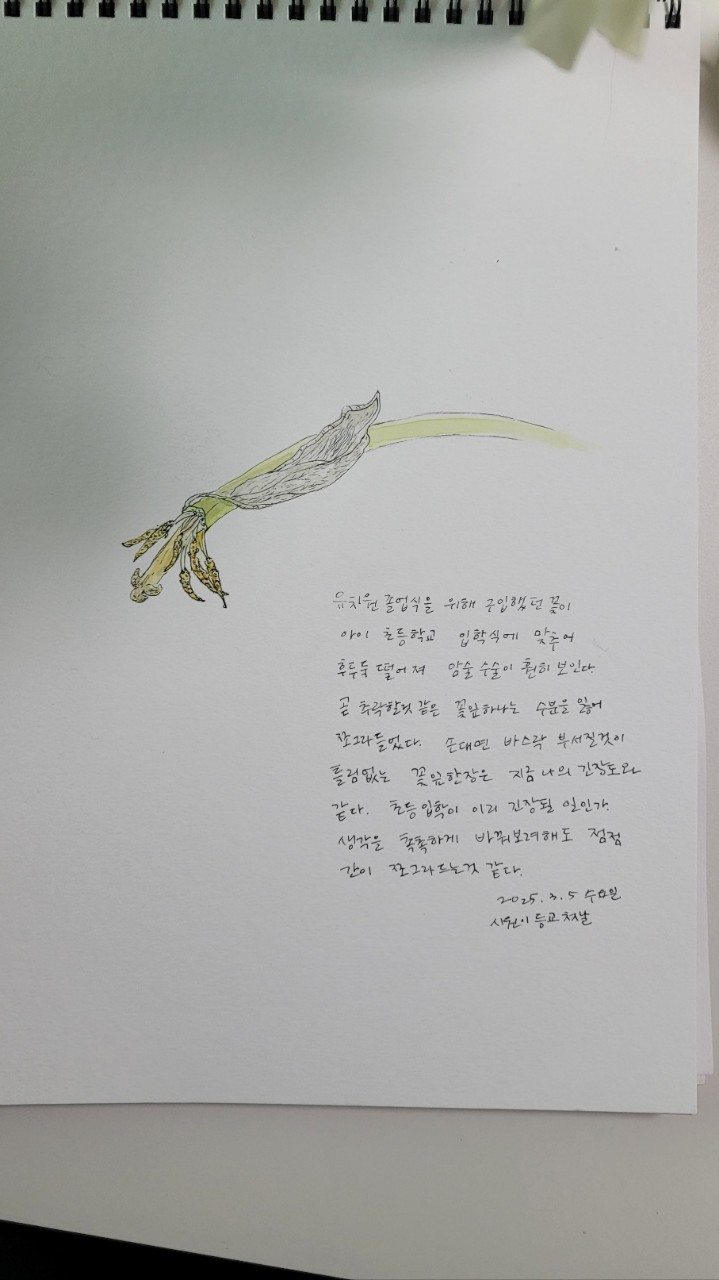 유치원 졸업식을 위해 구입했던 꽃이
아이 초등학교 입학식에 맞추어
후두둑 떨어져 암술 수술이 훤히 보인다.
곧 추락할것 같은 꽃잎하나는 수분을 잃어
쪼그라들었다. 손대면 바스락 부서질것이
틀림없는 꽃잎한장은 지금 나의 긴장도와
같다. 초등입학이 이리 긴장될 일인가.
생각을 촉촉하게 바꿔보려해도 점점
간이 쪼그라드는것 같다.
2025. 3. 5 수요일
시원이 등교 첫날